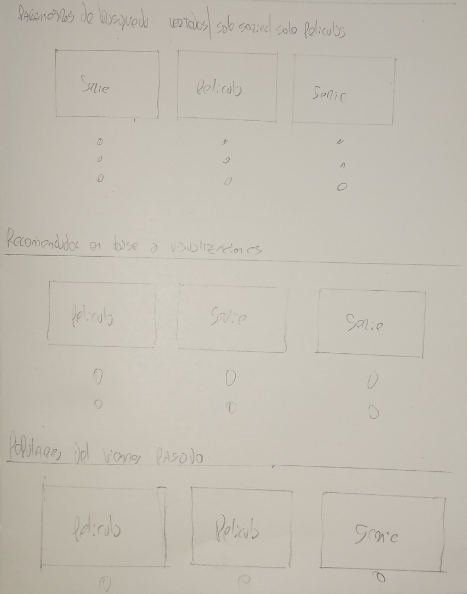 Parametros de busqueda variados/ solo series/ solo Peliculas
Serie Pelicula Serie
Recomendados en base a visualizaciones
Pelicula Serie Serie
Populares del viernes PASADO
Pelicula Pelicula Serie